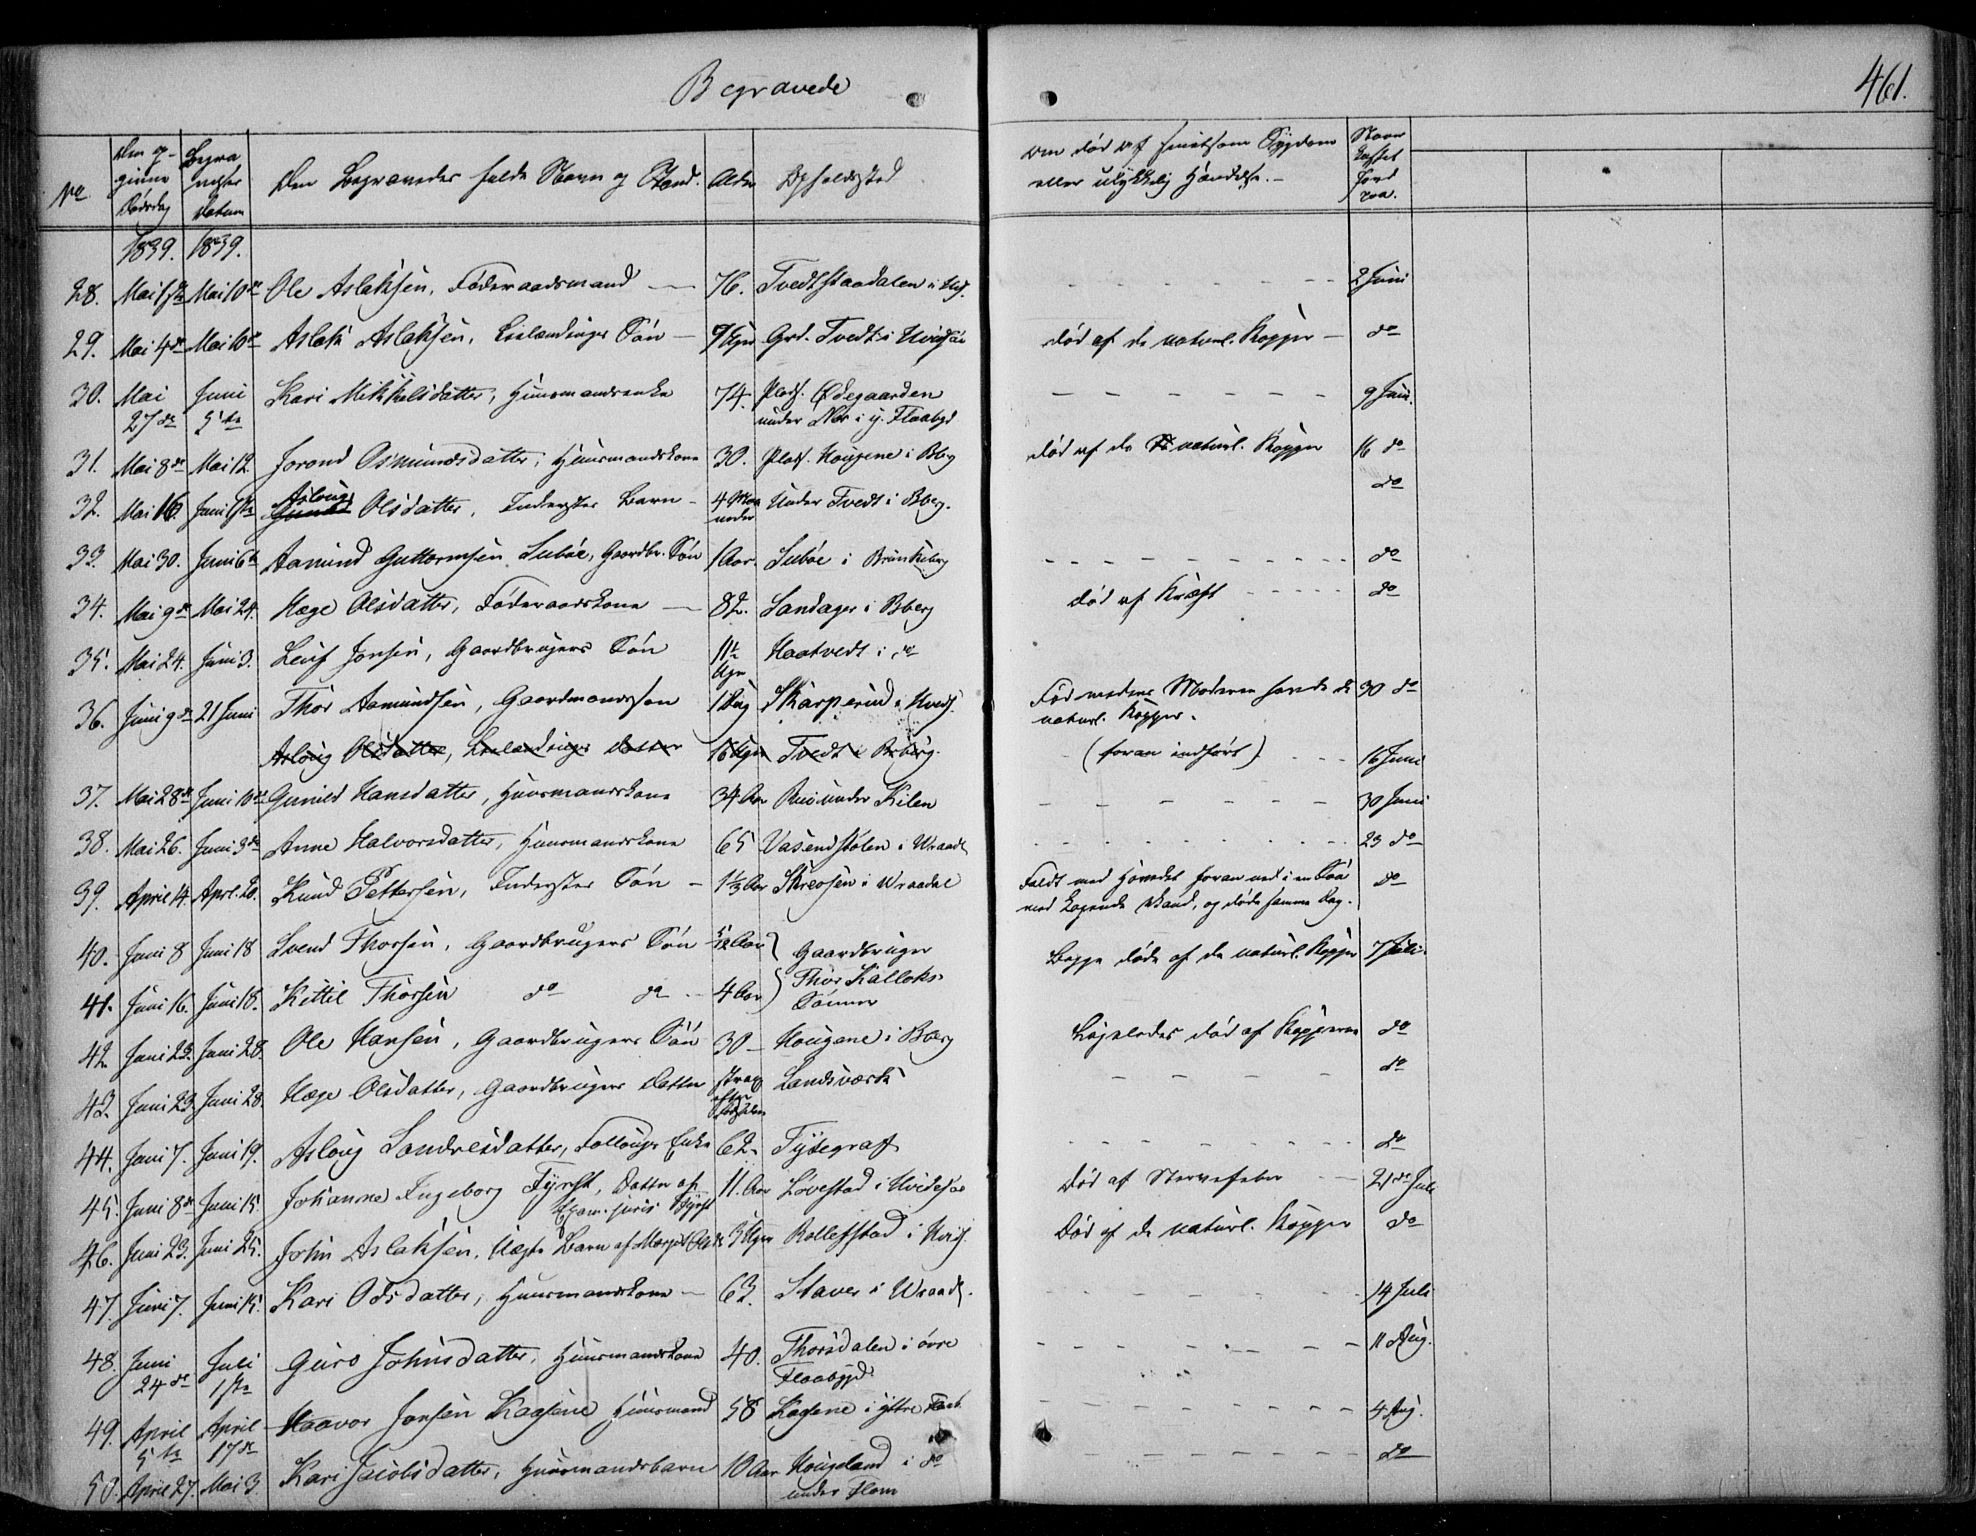 Begravede
461.
No
Den op-
givne
Dødsdag
Begra
velses
Datum
Den Begravedes fulde Navn og Stand.
Alder
Opholdsted
om død af smitsom Sygdom
eller ulykkelig Hændelse.-
Naar
kastet
Jord
paa.
1839. 1839.
28. Mai Mai 10de Ole Aslaksen, Føderaadsmand - 76. Tvedtstaadalen i Hvs. 2 Juni
29. Mai 4de Mai 10de Aslak Aslaksen, Leilændings Søn - Uger Grd. Tvedt i Hvidsøe død af de naturl. Kopper - do
30. Mai 27de Juni 5te Kari Mikkelsdatter, Huusmandsenke 74. Plads. Ødegaarden - 9 Juni.
under i y. Flaabyd
31. Mai 8de Mai 12 Jorond Osmundsdatter, Huusmandskone 30. Plads. Hougene i Bbg død af de naturl. Kopper 16 do
32. Mai 16. Juni Aslaug Olsdatter, Inderstes Barn - 4 under Under Tvedt i Bberg. do
33. Mai 30. Juni 6te Aamund Guttormsen Lubøe, Gaardbr. Søn 1 Aar. Lubøe i Brunkeberg do
34. Mai 9de Mai 24. Hæge Olsdatter, Føderaadskone - 82. Sandager i Bberg død af Kræft do
35. Mai 24. Juni 3. Leuf Jonsen, Gaardbrugers Søn 11½ Uge Haatvedt i do
36. Juni 9de 21 Juni Thor Aamundsen, Gaardmandssøn 1 Dag Skarperud i Hvids. Fød medens Moderen havde de 30 do
naturl. Kopper.
Aslaug Olsdatter, Leilændings Datter 16 Uger Tvedt i Bberg. (foran indført) 16 Juni
37. Mai 28de Juni 10de Gunild Hansdatter, Huusmandskone 34 Aar Rui under Kilen 30 Juni
38. Mai 26. Juni 3de Anne Halvorsdatter, Huusmandskone 65 Vasendstolen i Wraadl 23 do
39. April 14. Aprl. 20. Knud Pettersen, Inderstes Søn - 1½ Aar Skreosen i Wraadal Faldt med Hovedet foran ned i en Saa do
med kogende Vand, og døde samme Dag.
40. Juni 8 Juni 18 Svend Thorsen, Gaardbrugers Søn Aar Gaardbruger Begge døde af de naturl. Kopper 7 Juli.
41. Juni 16. Juni 18. Kittil Thorsen do do 4 Aar Thor Kalloks
Sønner
42 Juni 22. Juni 28. Ole Hansen, Gaardbrugers Søn 30 - Hougane i Bberg Ligeledes død af Kopperne do
43. Juni 23 Juni 28. Hæge Olsdatter, Gaardbrugers Datter strax efter Fødselen Landsværk do
44. Juni 7. Juni 19. Aslaug Sondresdatter, Enke 62. Tytegraff do
45. Juni 8de Juni 15 Johanne Ingeborg Fyrst, Datter af 11. Aar Lovestad i Hvidesøe Død af Nervefeber 21de Juli
Exam. juris Fyrst
46. Juni 23. Juni 25. John Aslaksen, Uægte Barn af Margit Olsd. 3 Uger Rolleffstad i Hvids. Død af de naturl. Kopper do
47. Juni 7. Juni 15. Kari Odsdatter, Huusmandskone - 63. Staver i Wraadl. 14 Juli
48. Juni 24de Juli 1ste Guro Johnsdatter, Huusmandskone 40. Thorsdalen i øvre 11 Aug.
Flaabyd
49. April 5te April 17de Haavor Jonsen Kaasene Huusmand 58 Kaasene i yttre Flaab. 4 Aug.
50. April 27. Mai 3. Kari Jacobsdatter, Huusmandsbarn 10 Aar Hougeland i do do
under Flom